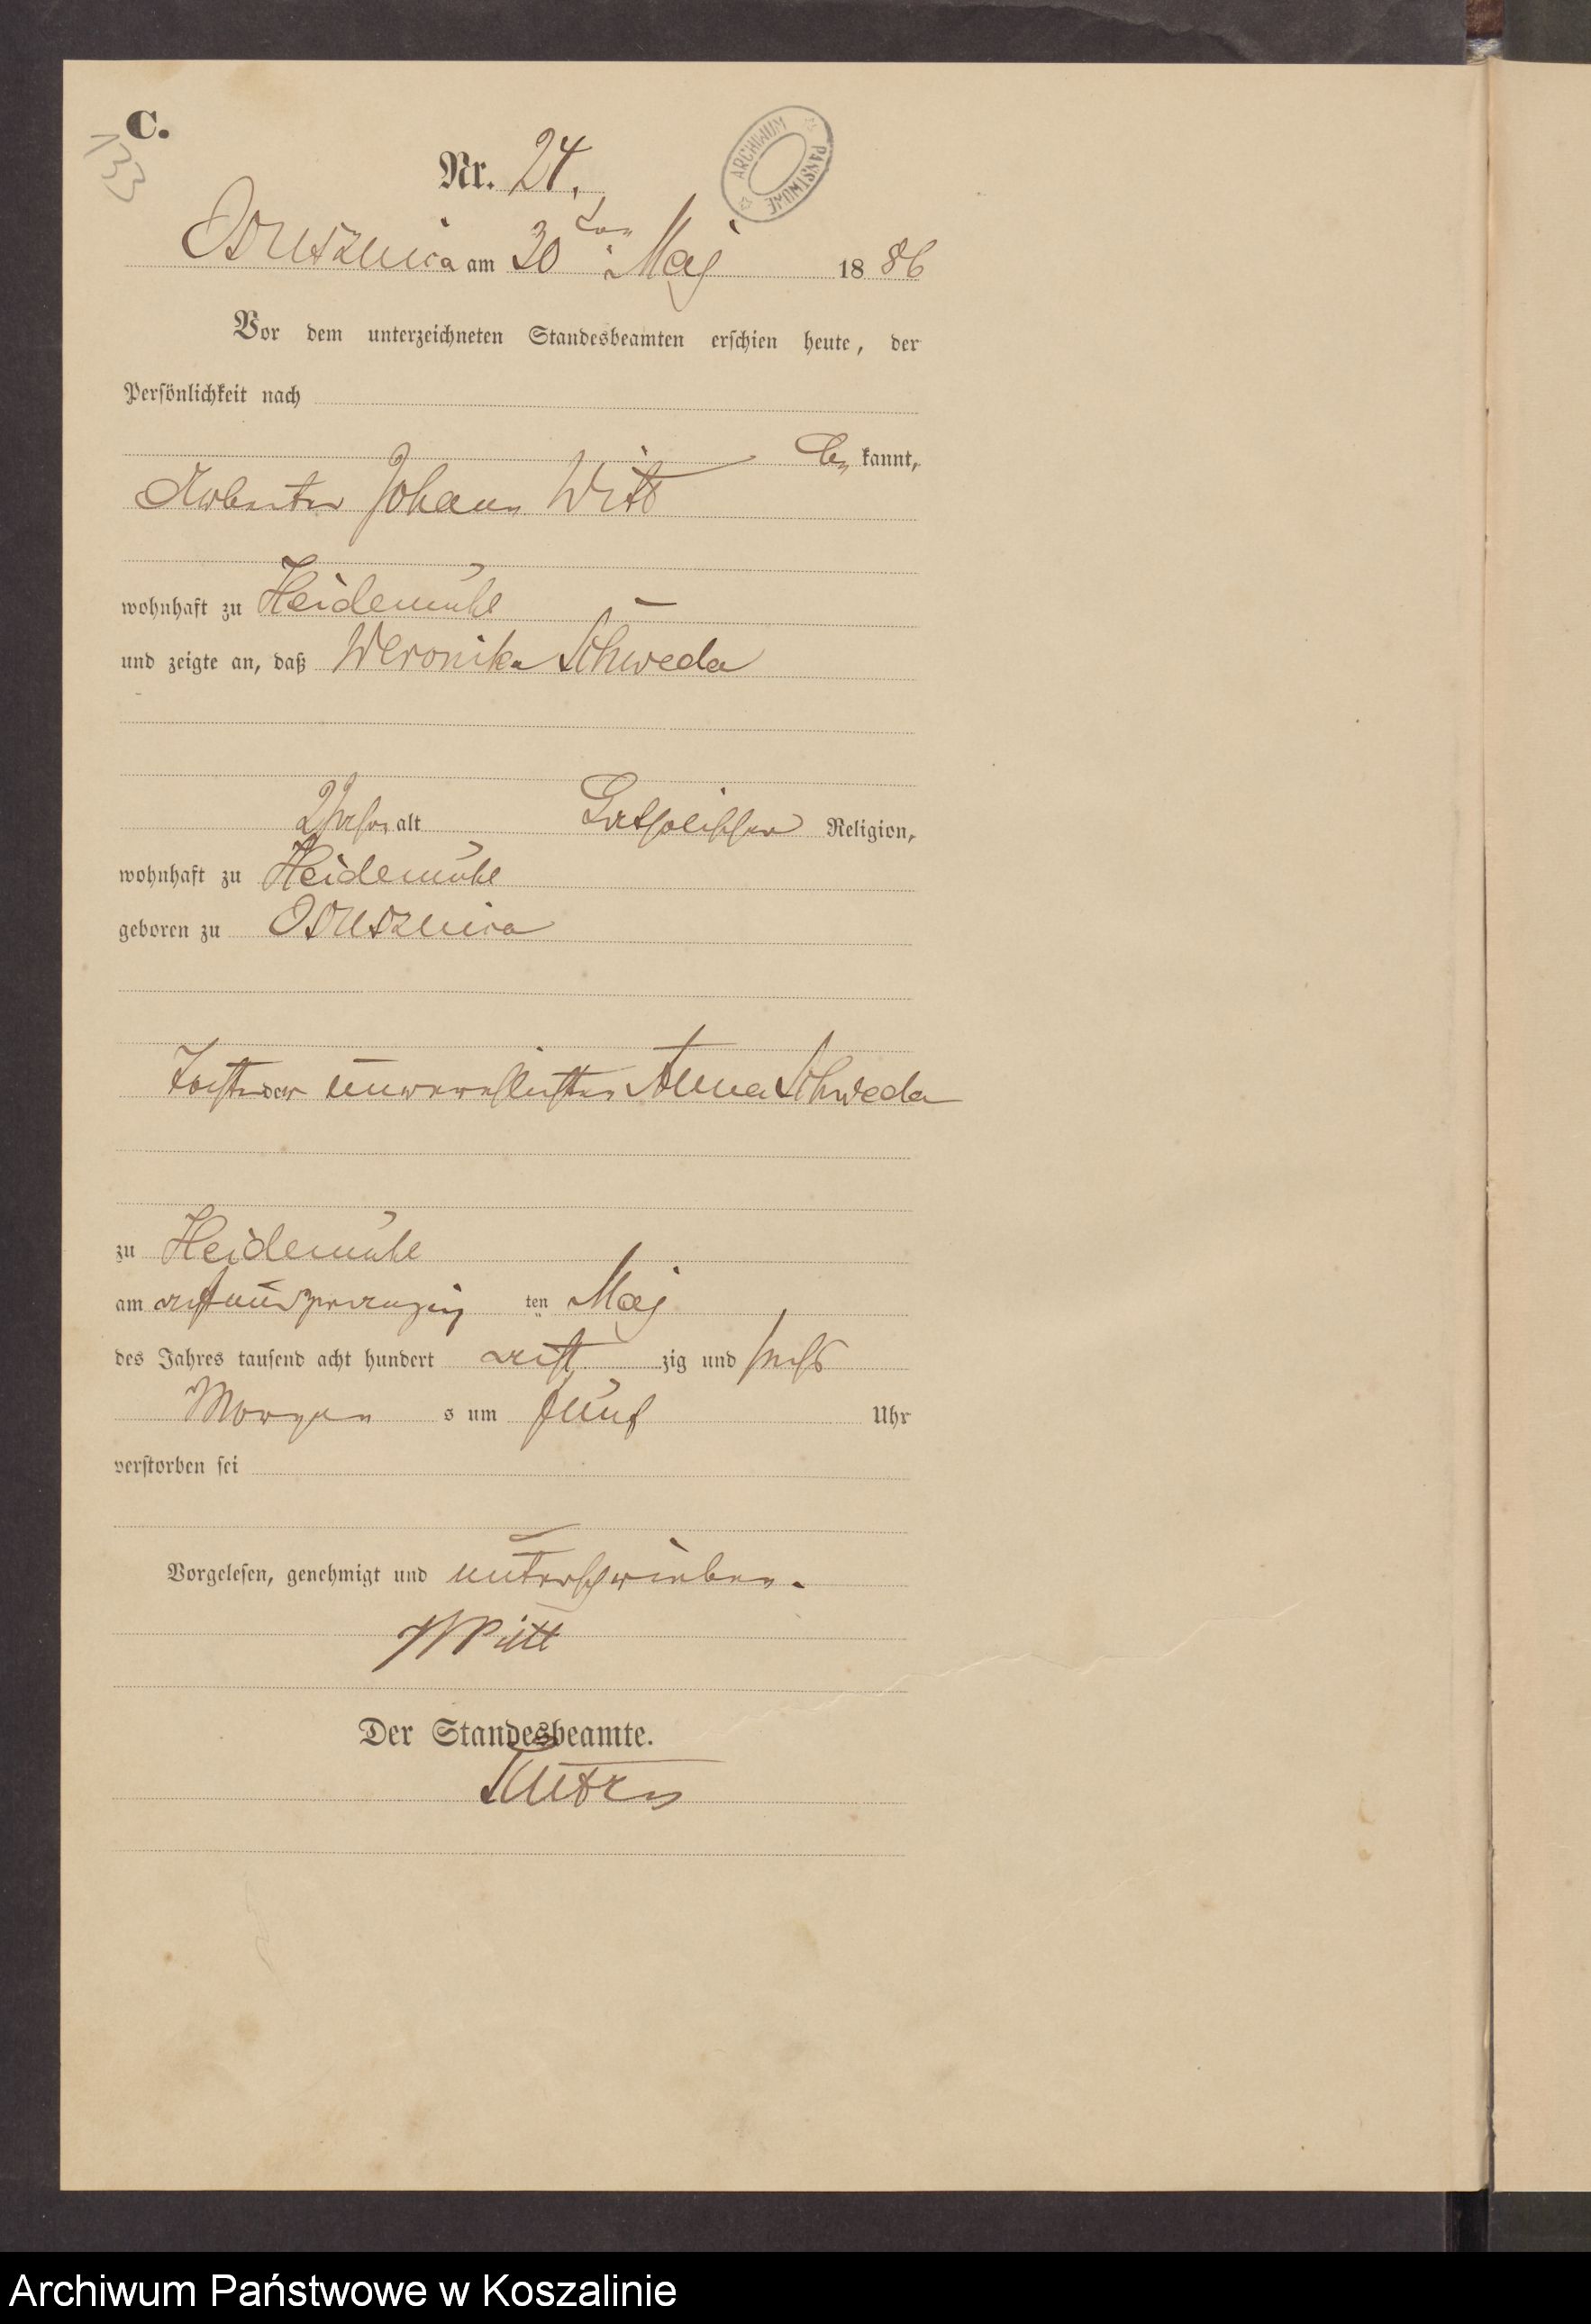 C.
133
Nr. 24.
ARCHIWUM PAŃSTWOWE
Osusznica am 30ten Maj 1886
Vor dem unterzeichneten Standesbeamten erschien heute, der
Persönlichkeit nach
be kannt,
Arbeiter Johann Witt
wohnhaft zu Heidemühl
und zeigte an, daß Weronika Schweda
2 Jahr alt Katholischer Religion,
wohnhaft zu Heidemühl
geboren zu Osusznica
Tochter der unverehlichten Anna Schweda
zu Heidemühl
am achtundzwanzig ten Maj
des Jahres tausend acht hundert acht zig und sechs
Morgen s um fünf Uhr
verstorben sei
Vorgelesen, genehmigt und unterschrieben.
Witt
Der Standesbeamte.
Archiwum Państwowe w Koszalinie